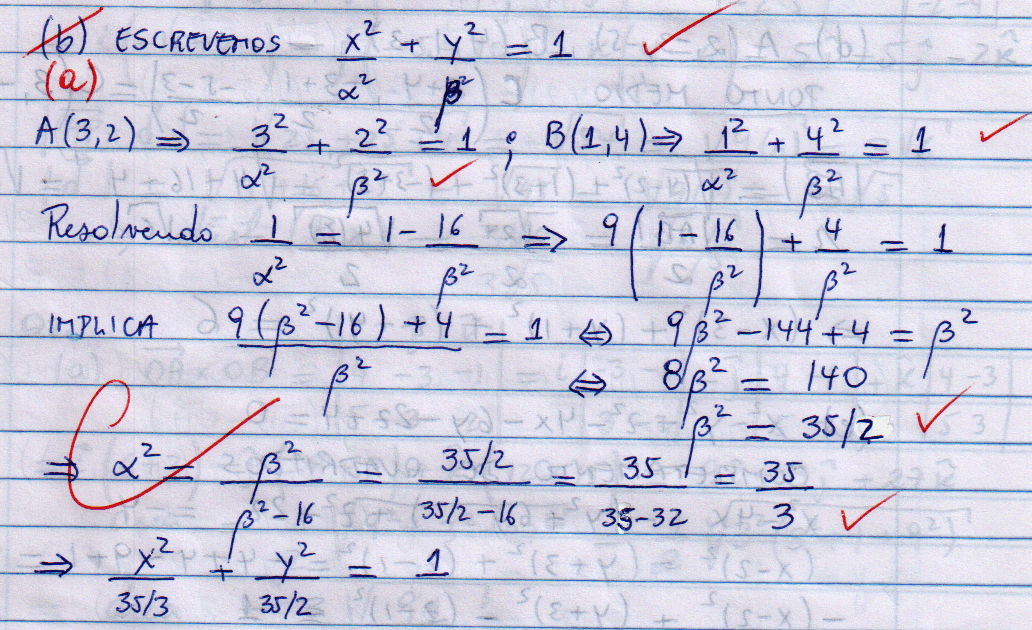 (b) ESCREVEMOS x²/α² + y²/β² = 1 ✓
(a)
A(3,2) ⇒ 3²/α² + 2²/β² = 1 ✓ ; B(1,4) ⇒ 1²/α² + 4²/β² = 1 ✓
Resolvendo 1/α² = 1 - 16/β² ⇒ 9(1 - 16/β²) + 4/β² = 1
IMPLICA 9(β²-16)+4/β² = 1 ⇔ 9β²-144+4 = β²
⇔ 8β² = 140
β² = 35/2 ✓
⇒ α² = β²/β²-16 = 35/2/35/2-16 = 35/35-32 = 35/3 ✓
⇒ x²/35/3 + y²/35/2 = 1